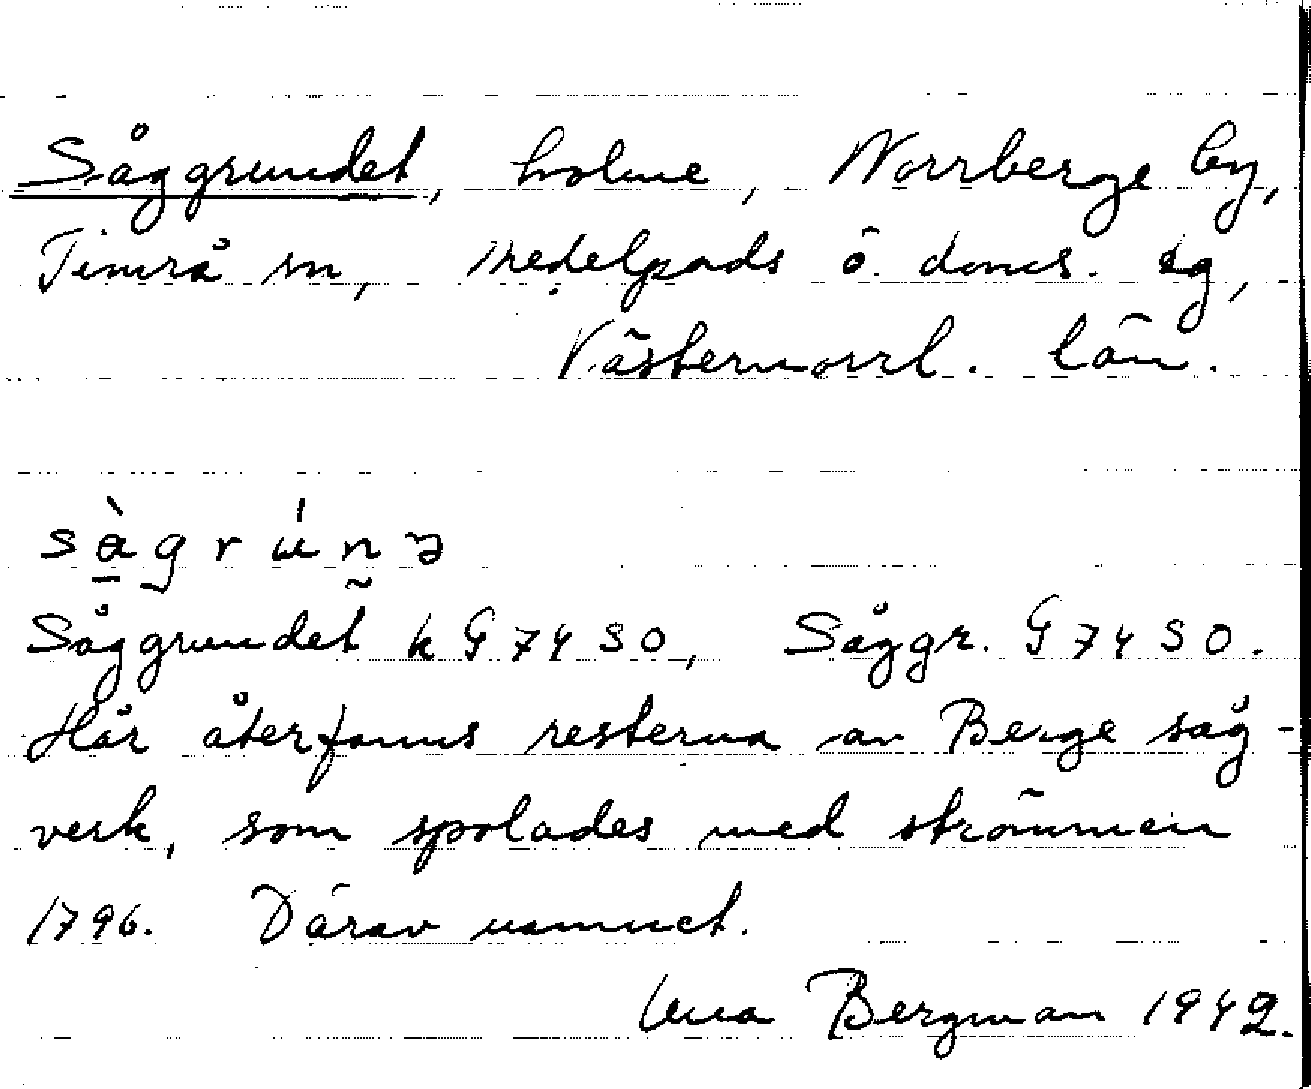 Såggrundet, holme, Norrberge by,
Timrå sn, Medelpads ö. doms. sg,
Västernorrl. län.
sà̱grúnə
Såggrundet k G 74 SO, Såggr. G 74 SO.
Här återfanns resterna av Berge såg-
verk, som spolades med strömmen
1796. Därav namnet.
Bergman 1942.